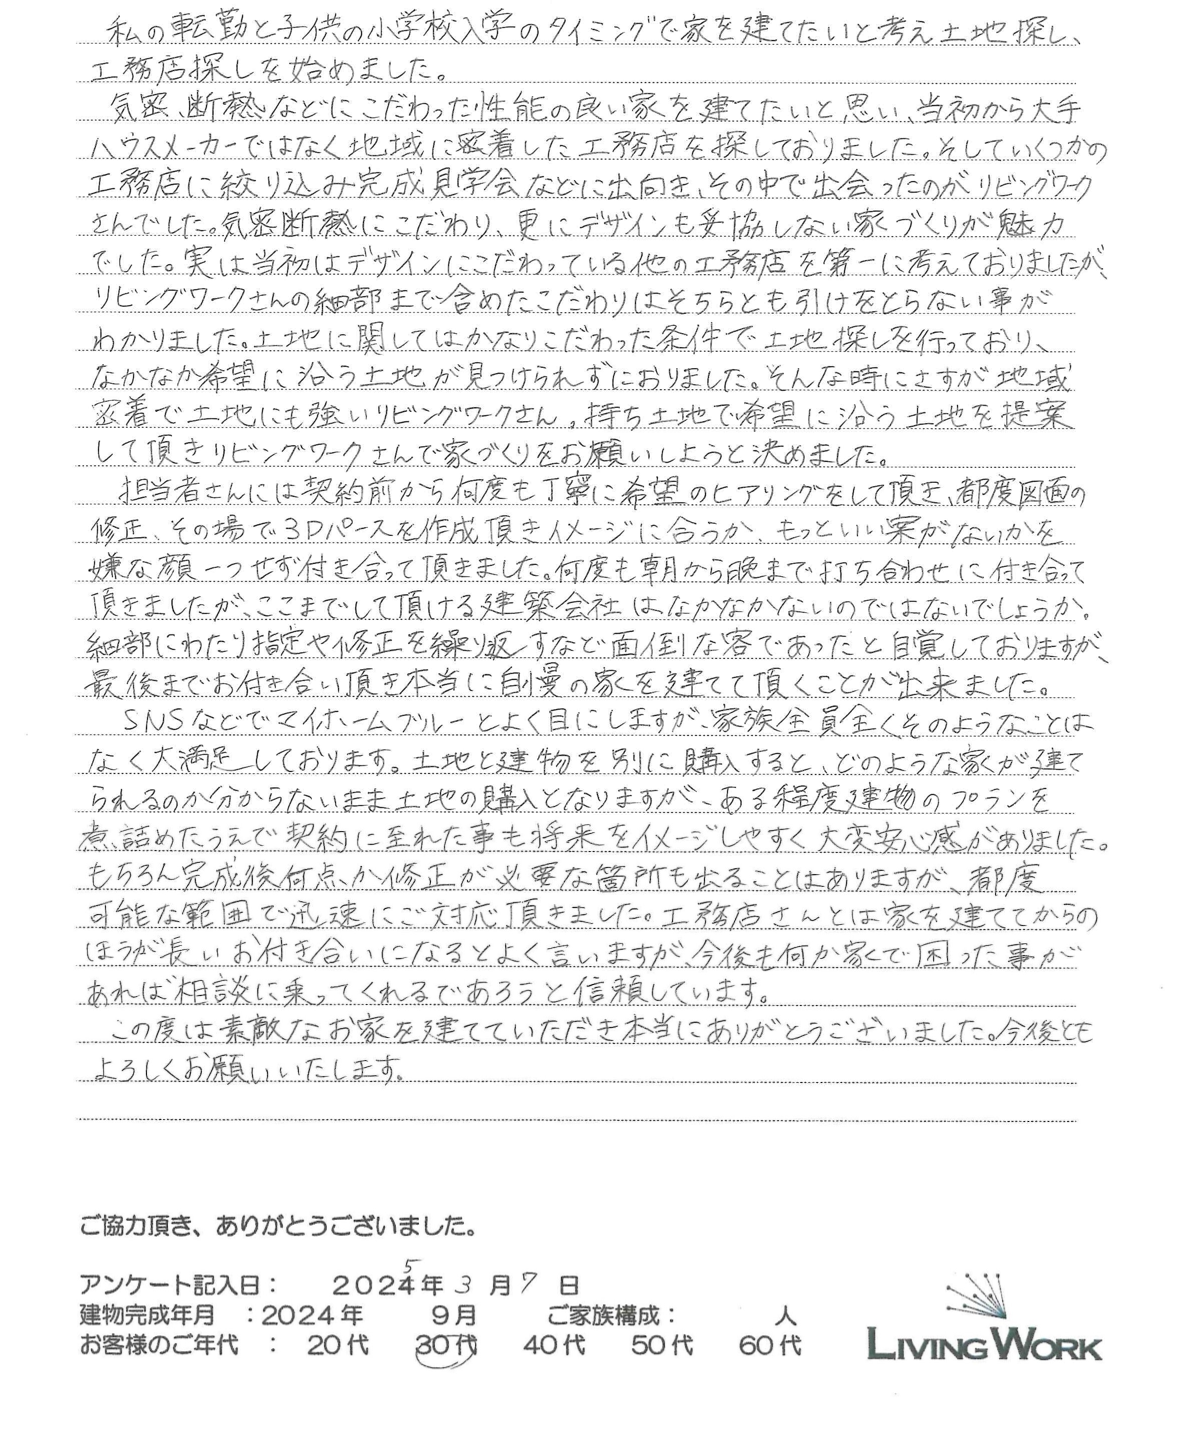 私の転勤と子供の小学校入学のタイミングで家を建てたいと考え土地探し、
工務店探しを始めました。
気密、断熱などにこだわった性能の良い家を建てたいと思い、当初から大手
ハウスメーカーではなく地域に密着した工務店を探しておりました。そしていくつかの
工務店に絞り込み完成見学会などに出向き、その中で出会ったのがリビングワーク
さんでした。気密断熱にこだわり、更にデザインも妥協しない家づくりが魅力
でした。実は当初はデザインにこだわっている他の工務店を第一に考えておりましたが、
リビングワークさんの細部まで含めたこだわりはそちらとも引けをとらない事が
わかりました。土地に関してはかなりこだわった条件で土地探しを行っており、
なかなか希望に沿う土地が見つけられずにおりました。そんな時にさすが地域
密着で土地にも強いリビングワークさん。持ち土地で希望に沿う土地を提案
して頂きリビングワークさんで家づくりをお願いしようと決めました。
担当者さんには契約前から何度も丁寧に希望のヒアリングをして頂き、都度図面の
修正、その場で3Dパースを作成頂きイメージに合うか、もっといい案がないかを
嫌な顔一つせず付き合って頂きました。何度も朝から晩まで打ち合わせに付き合って
頂きましたが、ここまでして頂ける建築会社はなかなかないのではないでしょうか。
細部にわたり指定や修正を繰り返すなど面倒な客であったと自覚しておりますが、
最後までお付き合い頂き本当に自慢の家を建てて頂くことが出来ました。
SNSなどでマイホームブルーとよく目にしますが、家族全員全くそのようなことは
なく大満足しております。土地と建物を別に購入すると、どのような家が建て
られるのか分からないまま土地の購入となりますが、ある程度建物のプランを
煮詰めたうえで契約に至れた事も将来をイメージしやすく大変安心感がありました。
もちろん完成後何点か修正が必要な箇所も出ることはありますが、都度
可能な範囲で迅速にご対応頂きました。工務店さんとは家を建ててからの
ほうが長いお付き合いになるとよく言いますが、今後も何か家で困った事が
あれば相談に乗ってくれるであろうと信頼しています。
この度は素敵なお家を建てていただき本当にありがとうございました。今後とも
よろしくお願いいたします。
ご協力頂き、ありがとうございました。
アンケート記入日： 2025年 3 月 7 日
建物完成年月 ：2024年 9月 ご家族構成： 人
お客様のご年代 ： 20代 30代 40代 50代 60代
LIVING WORK